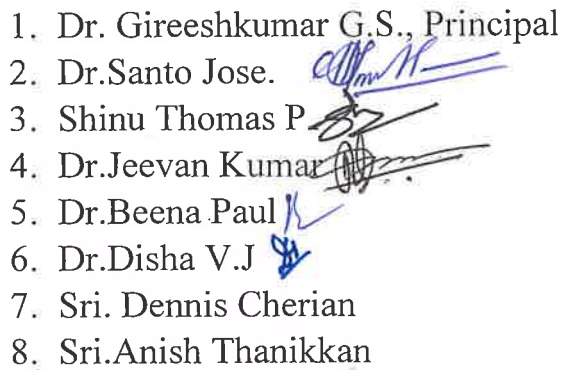 1. Dr. Gireeshkumar G.S., Principal
2. Dr.Santo Jose.
3. Shinu Thomas P
4. Dr.Jeevan Kumar
5. Dr.Beena Paul
6. Dr.Disha V.J
7. Sri. Dennis Cherian
8. Sri.Anish Thanikkan